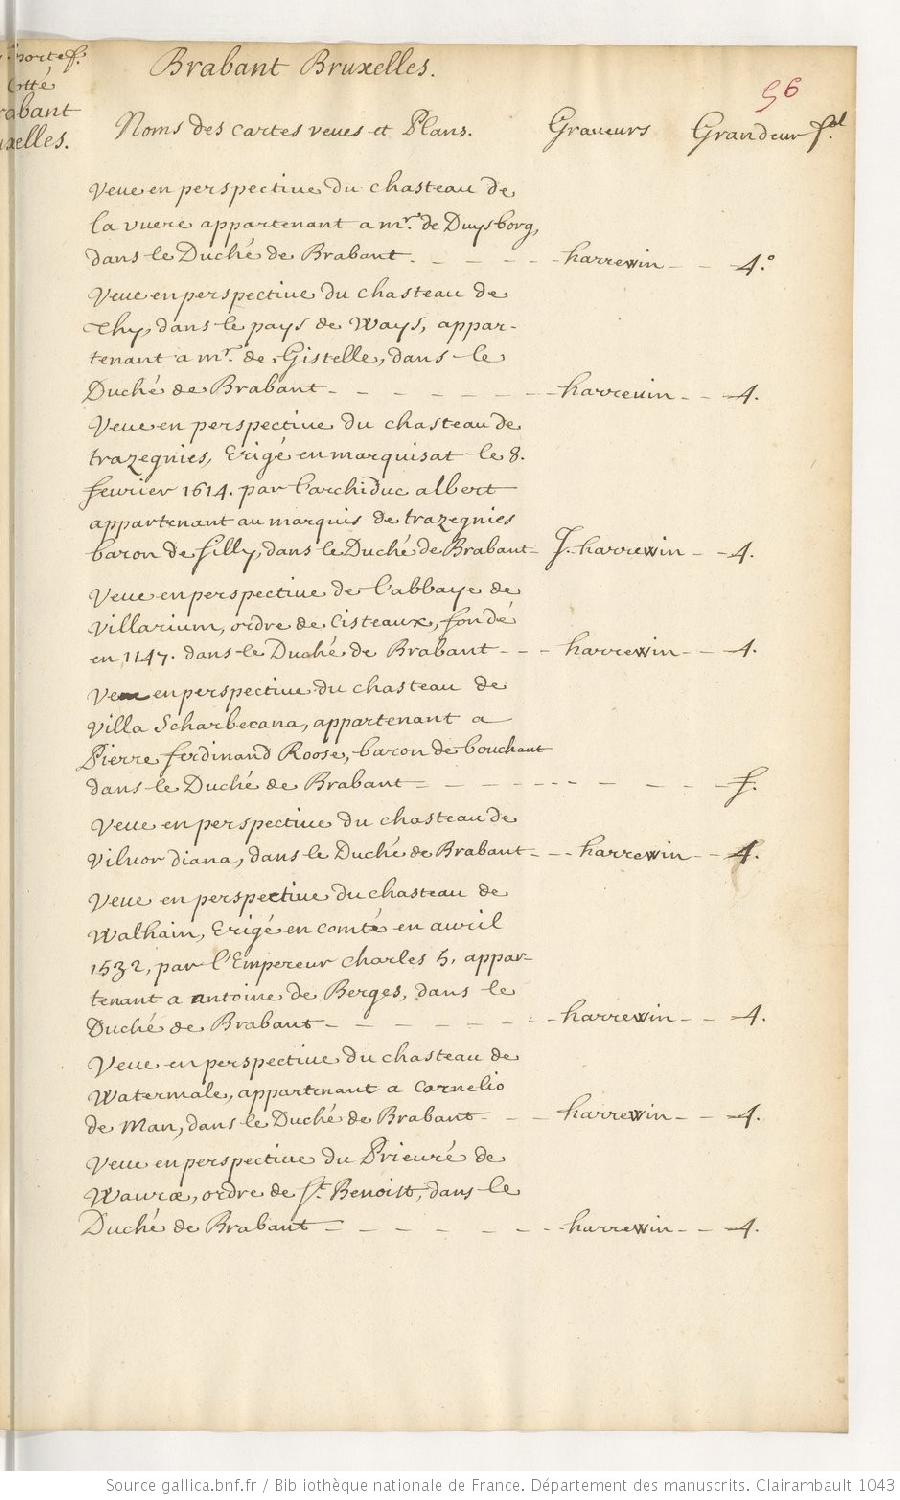 Portef.
Cotté
rabant
uxelles.
Brabant Bruxelles.
56
Noms des cartes veues et Plans. Graveurs Grandeur fol.
Veue en perspective du chasteau de
la vuere appartenant a mr. de Duysborg,
dans le Duché de Brabant. - - - - harrewin - - 4.o
Veue en perspective du chasteau de
Thy, dans le pays de Ways, appar-
tenant a mr. de Gistelle, dans le
Duché de Brabant - - - - - - - harrewin - - 4.
Veue en perspective du chasteau de
trazegnies, Erigé en marquisat le 8.
fevrier 1614. par l'archiduc albert
appartenant au marquis de trazegnies
baron de silly, dans le Duché de Brabant - J. harrewin - - 4.
Veue en perspective de l'abbaye de
Villarium, ordre de Cisteaux, fondé
en 1147. dans le Duché de Brabant - - - harrewin - - 4.
Veue en perspective du chasteau de
Villa Scharbecana, appartenant a
Pierre ferdinand Roose, baron de bouchant
dans le Duché de Brabant = - - - - - - - - - f.
Veue en perspective du chasteau de
Vilvor diana, dans le Duché de Brabant - - - harrewin - - 4.
Veue en perspective du chasteau de
Walhain, Erigé en comté en avril
1532, par l'Empereur Charles 5, appar-
tenant a antoine de Berges, dans le
Duché de Brabant - - - - - - - harrewin - - 4.
Veue en perspective du chasteau de
Watermale, appartenant a Cornelio
de Man, dans le Duché de Brabant - - - harrewin - - 4.
Veue en perspective du Prieuré de
Wauræ, ordre de St. Benoist, dans le
Duché de Brabant - - - - - - - harrewin - - 4.
Source gallica.bnf.fr / Bibliothèque nationale de France. Département des manuscrits. Clairambault 1043